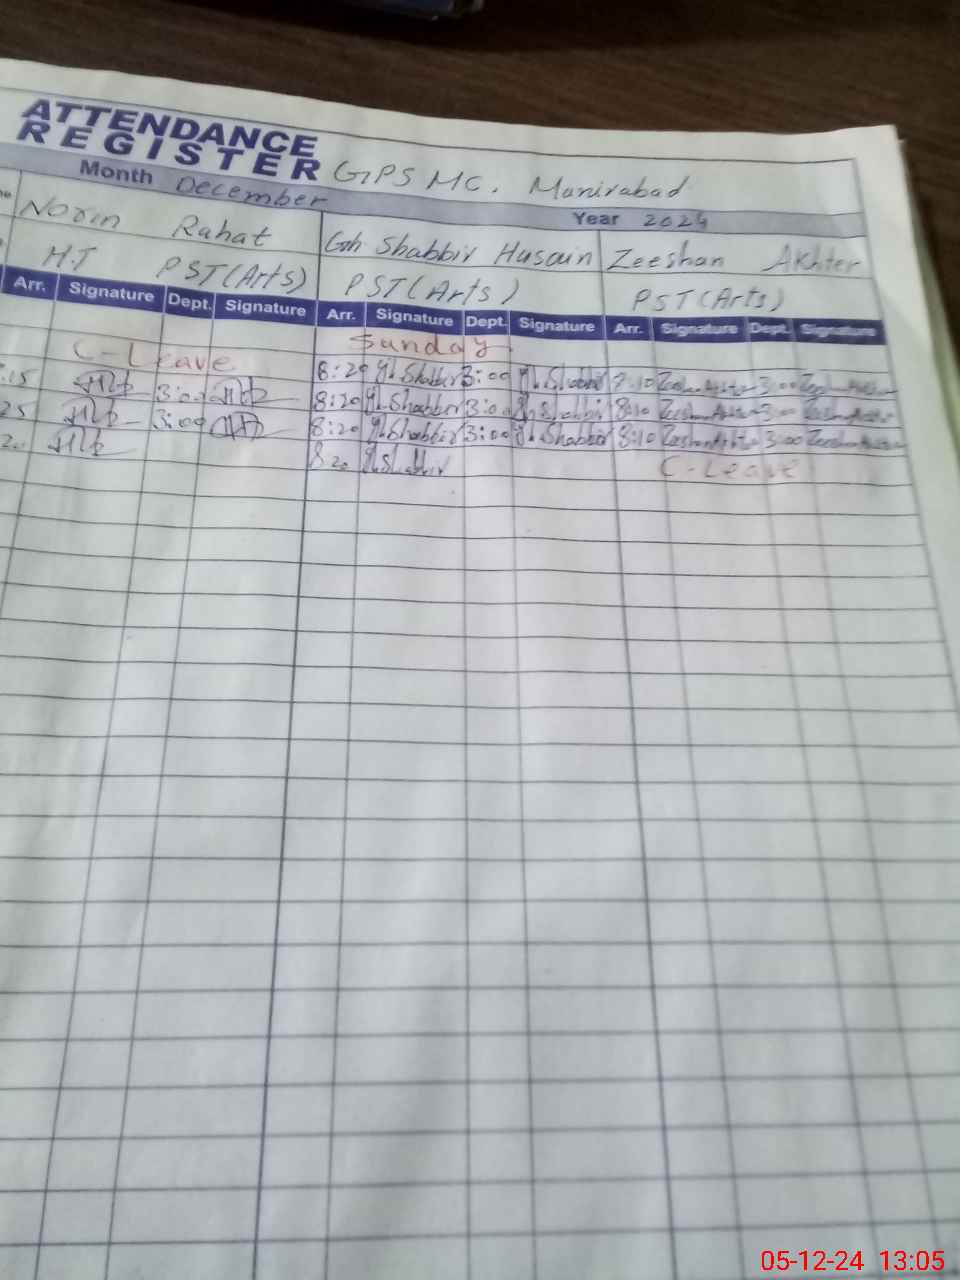 ATTENDANCE
REGISTER GPS MC. Munirabad
Month December Year 2024
Norin Rahat Gh Shabbir Husain Zeeshan Akhter
H.T PST(Arts) PST(Arts) PST(Arts)
Arr. Signature Dept. Signature Arr. Signature Dept. Signature Arr. Signature Dept. Signature
Sunday
C-Leave 8:20 Gh Shabbir 3:00 Gh Shabbir 8:10 Zeeshan Akhter 3:00 Zeeshan Akhter
:15 3:00 8:20 Gh Shabbir 3:00 Gh Shabbir 8:10 Zeeshan Akhter 3:00 Zeeshan Akhter
25 3:00 8:20 Gh Shabbir 3:00 Gh Shabbir 8:10 Zeeshan Akhter 3:00 Zeeshan Akhter
20 8 20 Gh Shabbir C-Leave
05-12-24 13:05